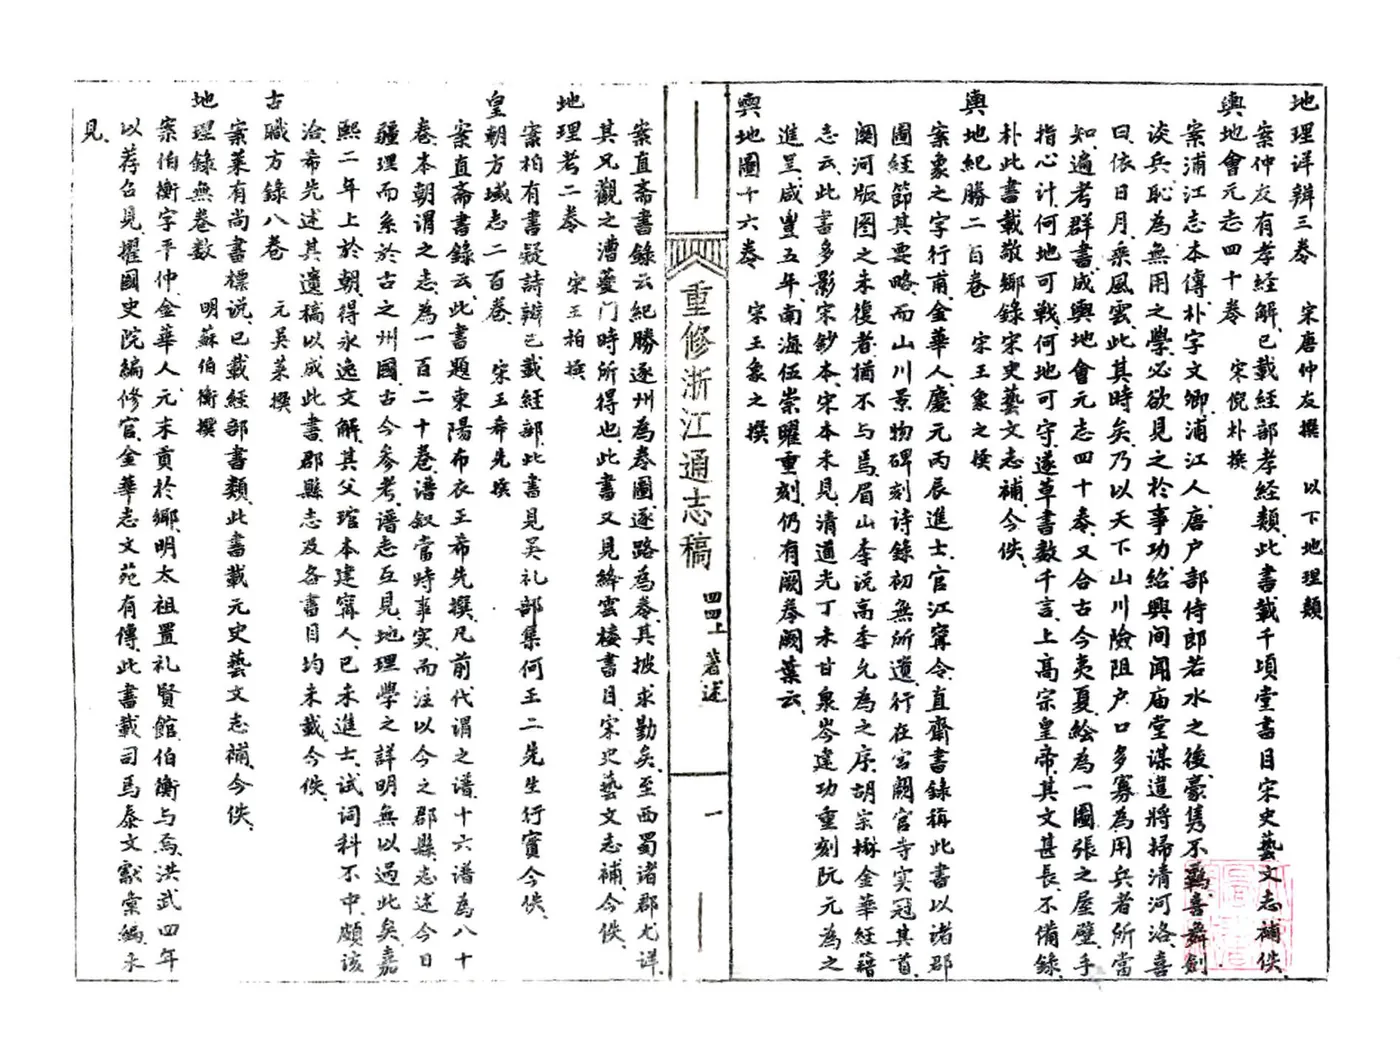 地理详辨三卷　宋唐仲友撰　以下地理類
案仲友有孝经解、已载经部孝经類、此書载千頃堂書目宋史藝文志補、佚、
輿地會元志四十卷　宋倪朴撰
案浦江志本傳、朴字文卿、浦江人、唐户部侍郎若水之後、豪隽不羁、喜舞劍
谈兵、恥為無用之學、必欲見之於事功、紹興间闻庙堂谋遣將掃清河洛、喜
曰、依日月、乘風雲、此其時矣、乃以天下山川險阻户口多寡為用兵者所當
知、遍考群書成輿地會元志四十卷、又合古今夷夏、绘為一圖、張之屋壁、手
指心计、何地可戰、何地可守、遂草書数千言、上高宗皇帝、其文甚長、不備録、
朴此書載敬鄉錄宋史藝文志補、今佚、
輿地纪勝二百卷　宋王象之撰
案象之字行甫、金华人、慶元丙辰進士、官江寧令、直齋書録稱此書以诸郡
圖经節其要略、而山川景物碑刻诗錄初無所遗、行在宫闕官寺实冠其首、
關河版图之未復者猶不与焉、眉山李说高季允為之序、胡宗楙金華經籍
志云、此書多影宋鈔本、宋本未見、清道光丁未甘泉岑建功重刻、阮元為之
進呈、咸豐五年、南海伍崇曜重刻、仍有闕卷闕葉云、
輿地圖十六卷　宋王象之撰
重修浙江通志稿　四四上　著述　一
案直斋書錄云、纪勝逐州為卷、圖逐路為卷、其披求勤矣、至西蜀诸郡尤详、
其兄觀之漕夔门時所得也、此書又見絳雲楼書目、宋史藝文志補、今佚、
地理考二卷　宋王柏撰
案柏有書疑詩辨已载经部、此書見吴礼部集何王二先生行實、今佚、
皇朝方域志二百卷、　宋王希先撰
案直斋書錄云、此書題東陽布衣王希先撰、凡前代谓之谱、十六谱為八十
卷、本朝谓之志、為一百二十卷、谱叙當時事实、而注以今之郡縣、志述今日
疆理而系於古之州國、古今参考、谱志互見、地理學之詳明、無以過此矣、嘉
熙二年上於朝、得永逸文解、其父琯本建寧人、已未進士、试词科不中、頗该
洽、希先述其遗稿以成此書、郡縣志及各書目均未载、今佚、
古職方錄八卷　元吴莱撰
案莱有尚書標说、已载经部書類、此書载元史藝文志補、今佚、
地理錄無卷数　明蘇伯衡撰
案伯衡字平仲、金华人、元末貢於鄉、明太祖置礼賢館、伯衡与焉、洪武四年
以荐召見、擢國史院編修官、金華志文苑有傳、此書载司马泰文獻彙编、未
見、